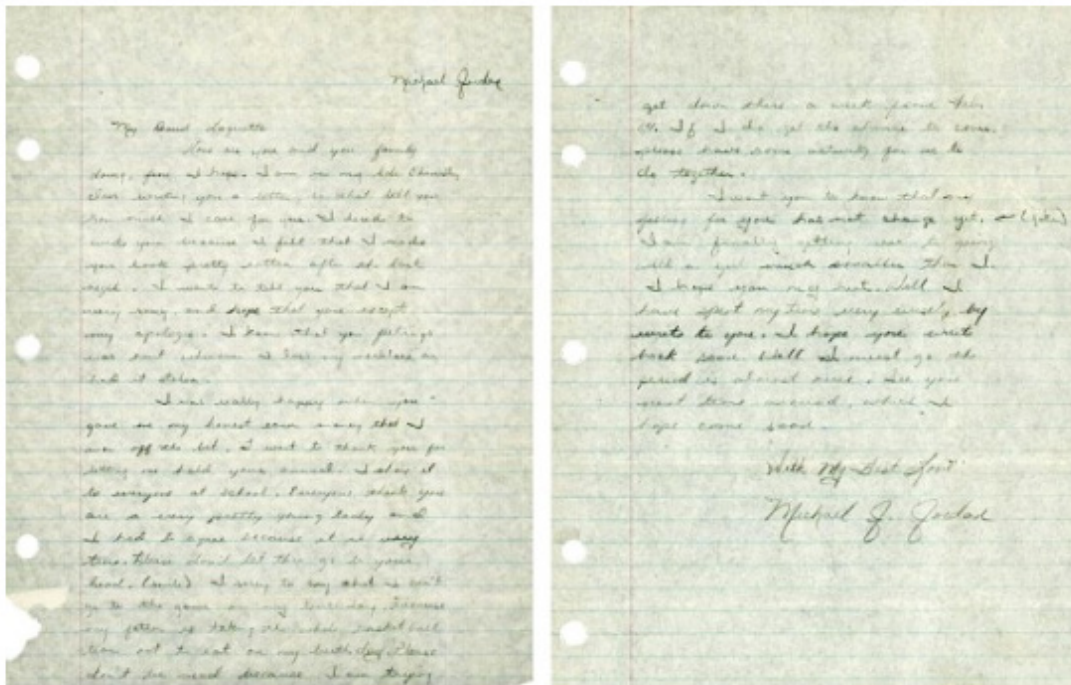 Michael Jordan
My Laquetta
How are you and you family
doing, fine I hope. I am in my Chemistry
class writing you a letter, to tell you
how much I care for you. I to
you because I felt that I made
you look pretty rotten after the last
. I want to tell you that I am
very sorry, and hope that you
my apology. I know that you feelings
was hurt whenever I lost my necklace or
had it stolen.
I was really happy when you
gave me my honest coin money that I
won off the bet. I want to thank you for
letting me hold your annual. I show it
to everyone at school. Everyone think you
are a very pretty young lady and
I had to agree because it is very
true. Please don't let this go to your
head. (smile) I sorry to say that I can't
go to the game on my birthday because
my father is taking the whole basketball
team out to eat on my birthday. Please
don't be mad because I am trying
get down there a week
If I do get the chance to come,
please have some activity for us to
do together.
I want you to know that my
feelings for you has not change yet. (joke)
I am finally getting use to going
with a girl much smaller than I.
I hope you my best. Well I
have spent my time very wisely by
to you. I hope you write
back soon. Well I must go the
period is almost over. See you
next time around, which I
hope come soon.
With My Best Love
Michael J. Jordan